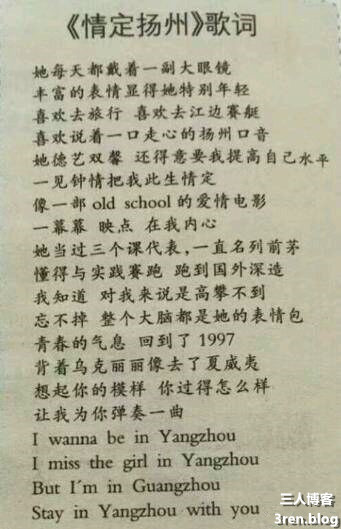 《情定扬州》歌词
她每天都戴着一副大眼镜
丰富的表情显得她特别年轻
喜欢去旅行 喜欢去江边赛艇
喜欢说着一口走心的扬州口音
她德艺双馨 还得意要我提高自己水平
一见钟情把我此生情定
像一部 old school 的爱情电影
一幕幕 映点 在我内心
她当过三个课代表,一直名列前茅
懂得与实践赛跑 跑到国外深造
我知道 对我来说是高攀不到
忘不掉 整个大脑都是她的表情包
青春的气息 回到了 1997
背着乌克丽丽像去了夏威夷
想起你的模样 你过得怎么样
让我为你弹奏一曲
I wanna be in Yangzhou
I miss the girl in Yangzhou
But I'm in Guangzhou
Stay in Yangzhou with you
三人博客
3ren.blog